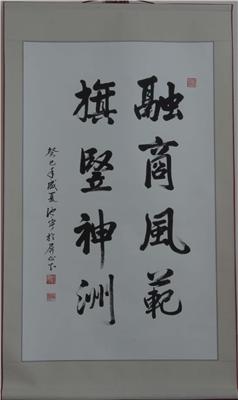 融商風範
旗豎神洲
癸巳年盛夏